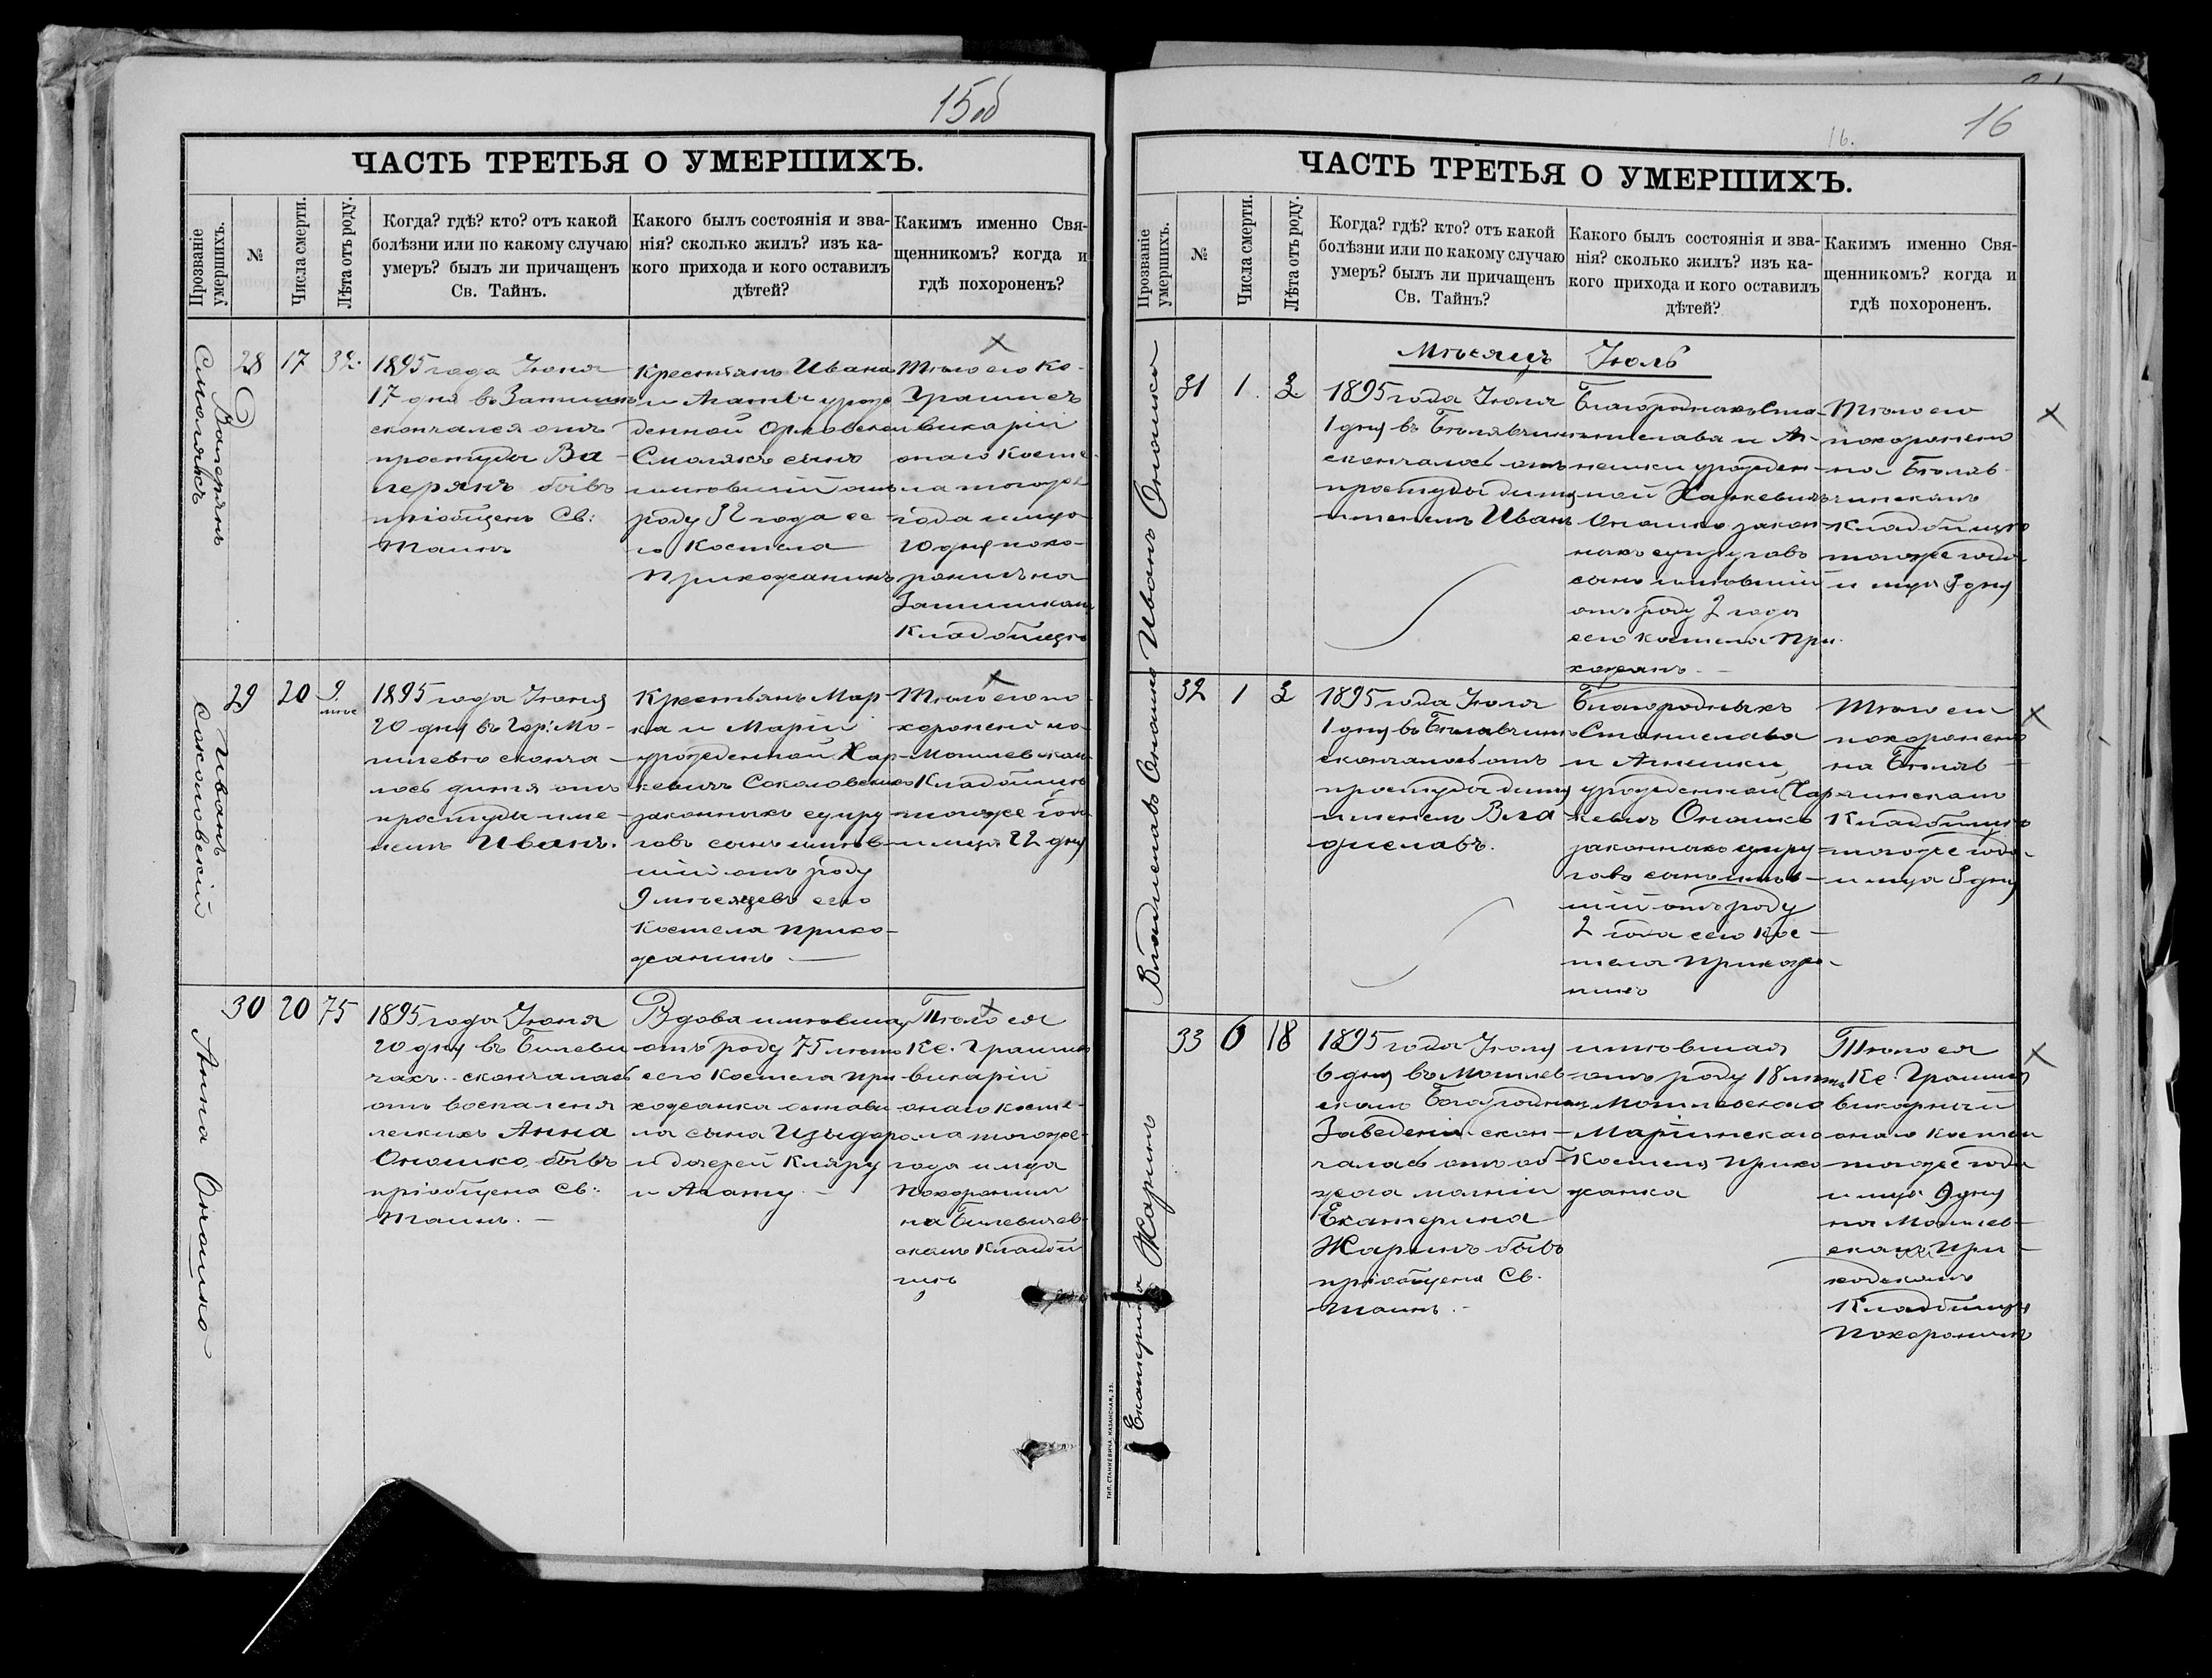 15об
ЧАСТЬ ТРЕТЬЯ О УМЕРШИХЪ.
Прозваніе умершихъ.
№
Числа смерти.
Лѣта отъ роду.
Когда? гдѣ? кто? отъ какой
болѣзни или по какому случаю
умеръ? былъ ли причащенъ
Св. Тайнъ.
Какого былъ состоянія и зва-
нія? сколько жилъ? изъ ка-
кого прихода и кого оставилъ
дѣтей?
Какимъ именно Свя-
щенникомъ? когда и
гдѣ похороненъ?
Валерянъ
Смолякъ
28
17
32.
1895 года Іюня
17 дня въ
скончался отъ
простуды Ва-
лерянъ бывъ
пріобщенъ Св:
Таинъ
Крестьянъ Ивана
и Агаты урож
денной
Смолякъ сынъ
имѣвшій отъ
роду 32 года се
го Костела
Прихожанинъ
Тѣло его Кс.
викарій
онаго Косте
ла тогожъ
года и мца
20 дня похо-
ронилъ на
Кладбищѣ
Иванъ
Соколовскій
29
20
9
мѣс
1895 года Іюня
20 дня въ Гор: Мо-
гилевѣ сконча-
лось дитя отъ
простуды име-
немъ Иванъ.
Крестьянъ Мар-
ка и Маріи
урожденной Хар-
кевичъ Соколовскихъ
законныхъ супру
говъ сынъ имѣв-
шій отъ роду
9 мѣсяцевъ сего
Костела прихо-
жанинъ.
Тѣло его по-
хоронено на
Могилевскомъ
Кладбищѣ
тогоже года
и мца 22 дня
Анна Оношко
30
20
75
1895 года Іюня
20 дня въ Билеви
чахъ скончалась
отъ воспаленія
легкихъ Анна
Оношко бывъ
пріобщена Св:
Таинъ.
Вдова имѣвшая
отъ роду 75 лѣтъ
сего Костела при
хожанка остави
ла сына Изыдора
и дочерей Кляру
и Агату
Тѣло ея
Кс.
викарій
онаго косте-
ла тогоже
года и мца
похоронилъ
на Билевичев-
скомъ Кладби
щѣ
16
16.
ЧАСТЬ ТРЕТЬЯ О УМЕРШИХЪ.
Прозваніе умершихъ.
№
Числа смерти.
Лѣта отъ роду.
Когда? гдѣ? кто? отъ какой
болѣзни или по какому случаю
умеръ? былъ ли причащенъ
Св. Тайнъ?
Какого былъ состоянія и зва-
нія? сколько жилъ? изъ ка-
кого прихода и кого оставилъ
дѣтей?
Какимъ именно Свя-
щенникомъ? когда и
гдѣ похороненъ.
Мѣсяцъ Іюль
Иванъ Оношко
31
1.
2
1895 года Іюля
1 дня въ
скончалось отъ
простуды дитя
именемъ Иванъ
Благородныхъ Ста-
нислава и Аг-
нешки урожден-
ной Харкевичъ
Оношко закон
ныхъ супруговъ
сынъ имѣвшій
отъ роду 2 года
сего костела При
хожанъ.
Тѣло его
похоронено
на
Кладбищѣ
тогоже года
и мца 3 дня
Владиславъ Оношко
32
1
2
1895 года Іюля
1 дня въ
скончалось отъ
простуды дитя
именемъ Вла
диславъ.
Благородныхъ
Станислава
и Агнешки
урожденной Хар
кевичъ Оношко
законныхъ супру
говъ сынъ имѣв-
шій отъ роду
2 года сего Кос-
тела Прихожа-
нинъ
Тѣло его
похоронено
на
Кладбищѣ
тогоже года
и мца 3 дня
Екатерина Жаринъ
33
6
18
1895 года Іюля
6 дня въ Могилев
скомъ Богоугодномъ
Заведеніи скон-
чалась отъ об-
жога молніи
Екатерина
Жаринъ бывъ
пріобщена Св.
Таинъ.
имѣвшая
отъ роду 18 лѣтъ
Могилевскаго
Маріинскаго
Костела прихо
жанка
Тѣло ея
Кс.
викарный
онаго Костела
тогоже года
и мца 9 дня
на Могилев-
скомъ При-
ходскомъ
Кладбищѣ
Похоронилъ
ТИП. СТАНКЕВИЧА, КАЗАНСКАЯ, 33.